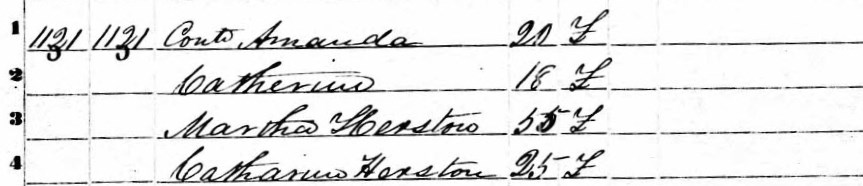 1 1131 1131 Cont Amanda 20 F
2 Catherine 18 F
3 Martha Herston 55 F
4 Catharine Herston 25 F